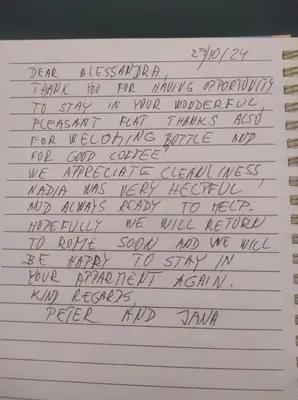 29/10/24
DEAR ALESSANDRA,
THANK YOU FOR HAVING OPPORTUNITY
TO STAY IN YOUR WONDERFUL,
PLEASANT FLAT. THANKS ALSO
FOR WELCOMING BOTTLE AND
FOR GOOD COFFEE!
WE APPRECIATE CLEANLINESS,
NADIA WAS VERY HELPFUL
AND ALWAYS READY TO HELP.
HOPEFULLY WE WILL RETURN
TO ROME SOON AND WE WILL
BE HAPPY TO STAY IN
YOUR APPARTMENT AGAIN.
KIND REGARDS,
PETER AND JANA